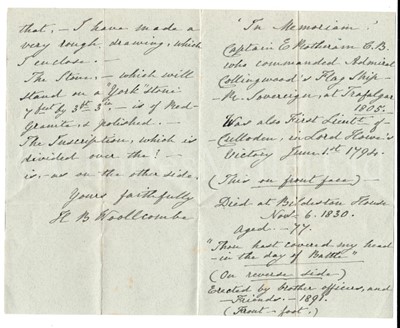 that, - I have made a
very rough drawing, which
I enclose. -
The Stone, - which will
stand on a York Stone
7 feet by 3ft 3in - is of Red
Granite, & polished. -
The Inscription, which is
divided over the! -
is - as on the other side.
Yours faithfully
H B Woollcombe
"In Memoriam."
Captain E Rotheram C.B.
who commanded Admiral
Collingwood's Flag Ship -
Rl. Sovereign, at Trafalgar,
1805.
Was also First Lieut. of -
Culloden, in Lord Howe's
Victory June 1st 1794.
(This on front face) -
Died at Bildeston House
Nov. 6. 1830.
Aged. - 77.
"Thou hast covered my head
- in the day of Battle"
(On reverse side)
Erected by brother officers, and
- Friends. - 189
(Front - foot.)